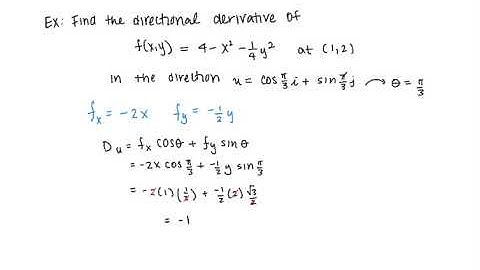 Ex: Find the directional derivative of
f(x,y) = 4 - x² - 1/4 y² at (1,2)
in the direction u = cos π/3 i + sin π/3 j → θ = π/3
fx = -2x fy = -1/2 y
Du = fx cosθ + fy sinθ
= -2x cos π/3 + -1/2 y sin π/3
= -2(1)(1/2) + -1/2 (2) √3/2
= -1